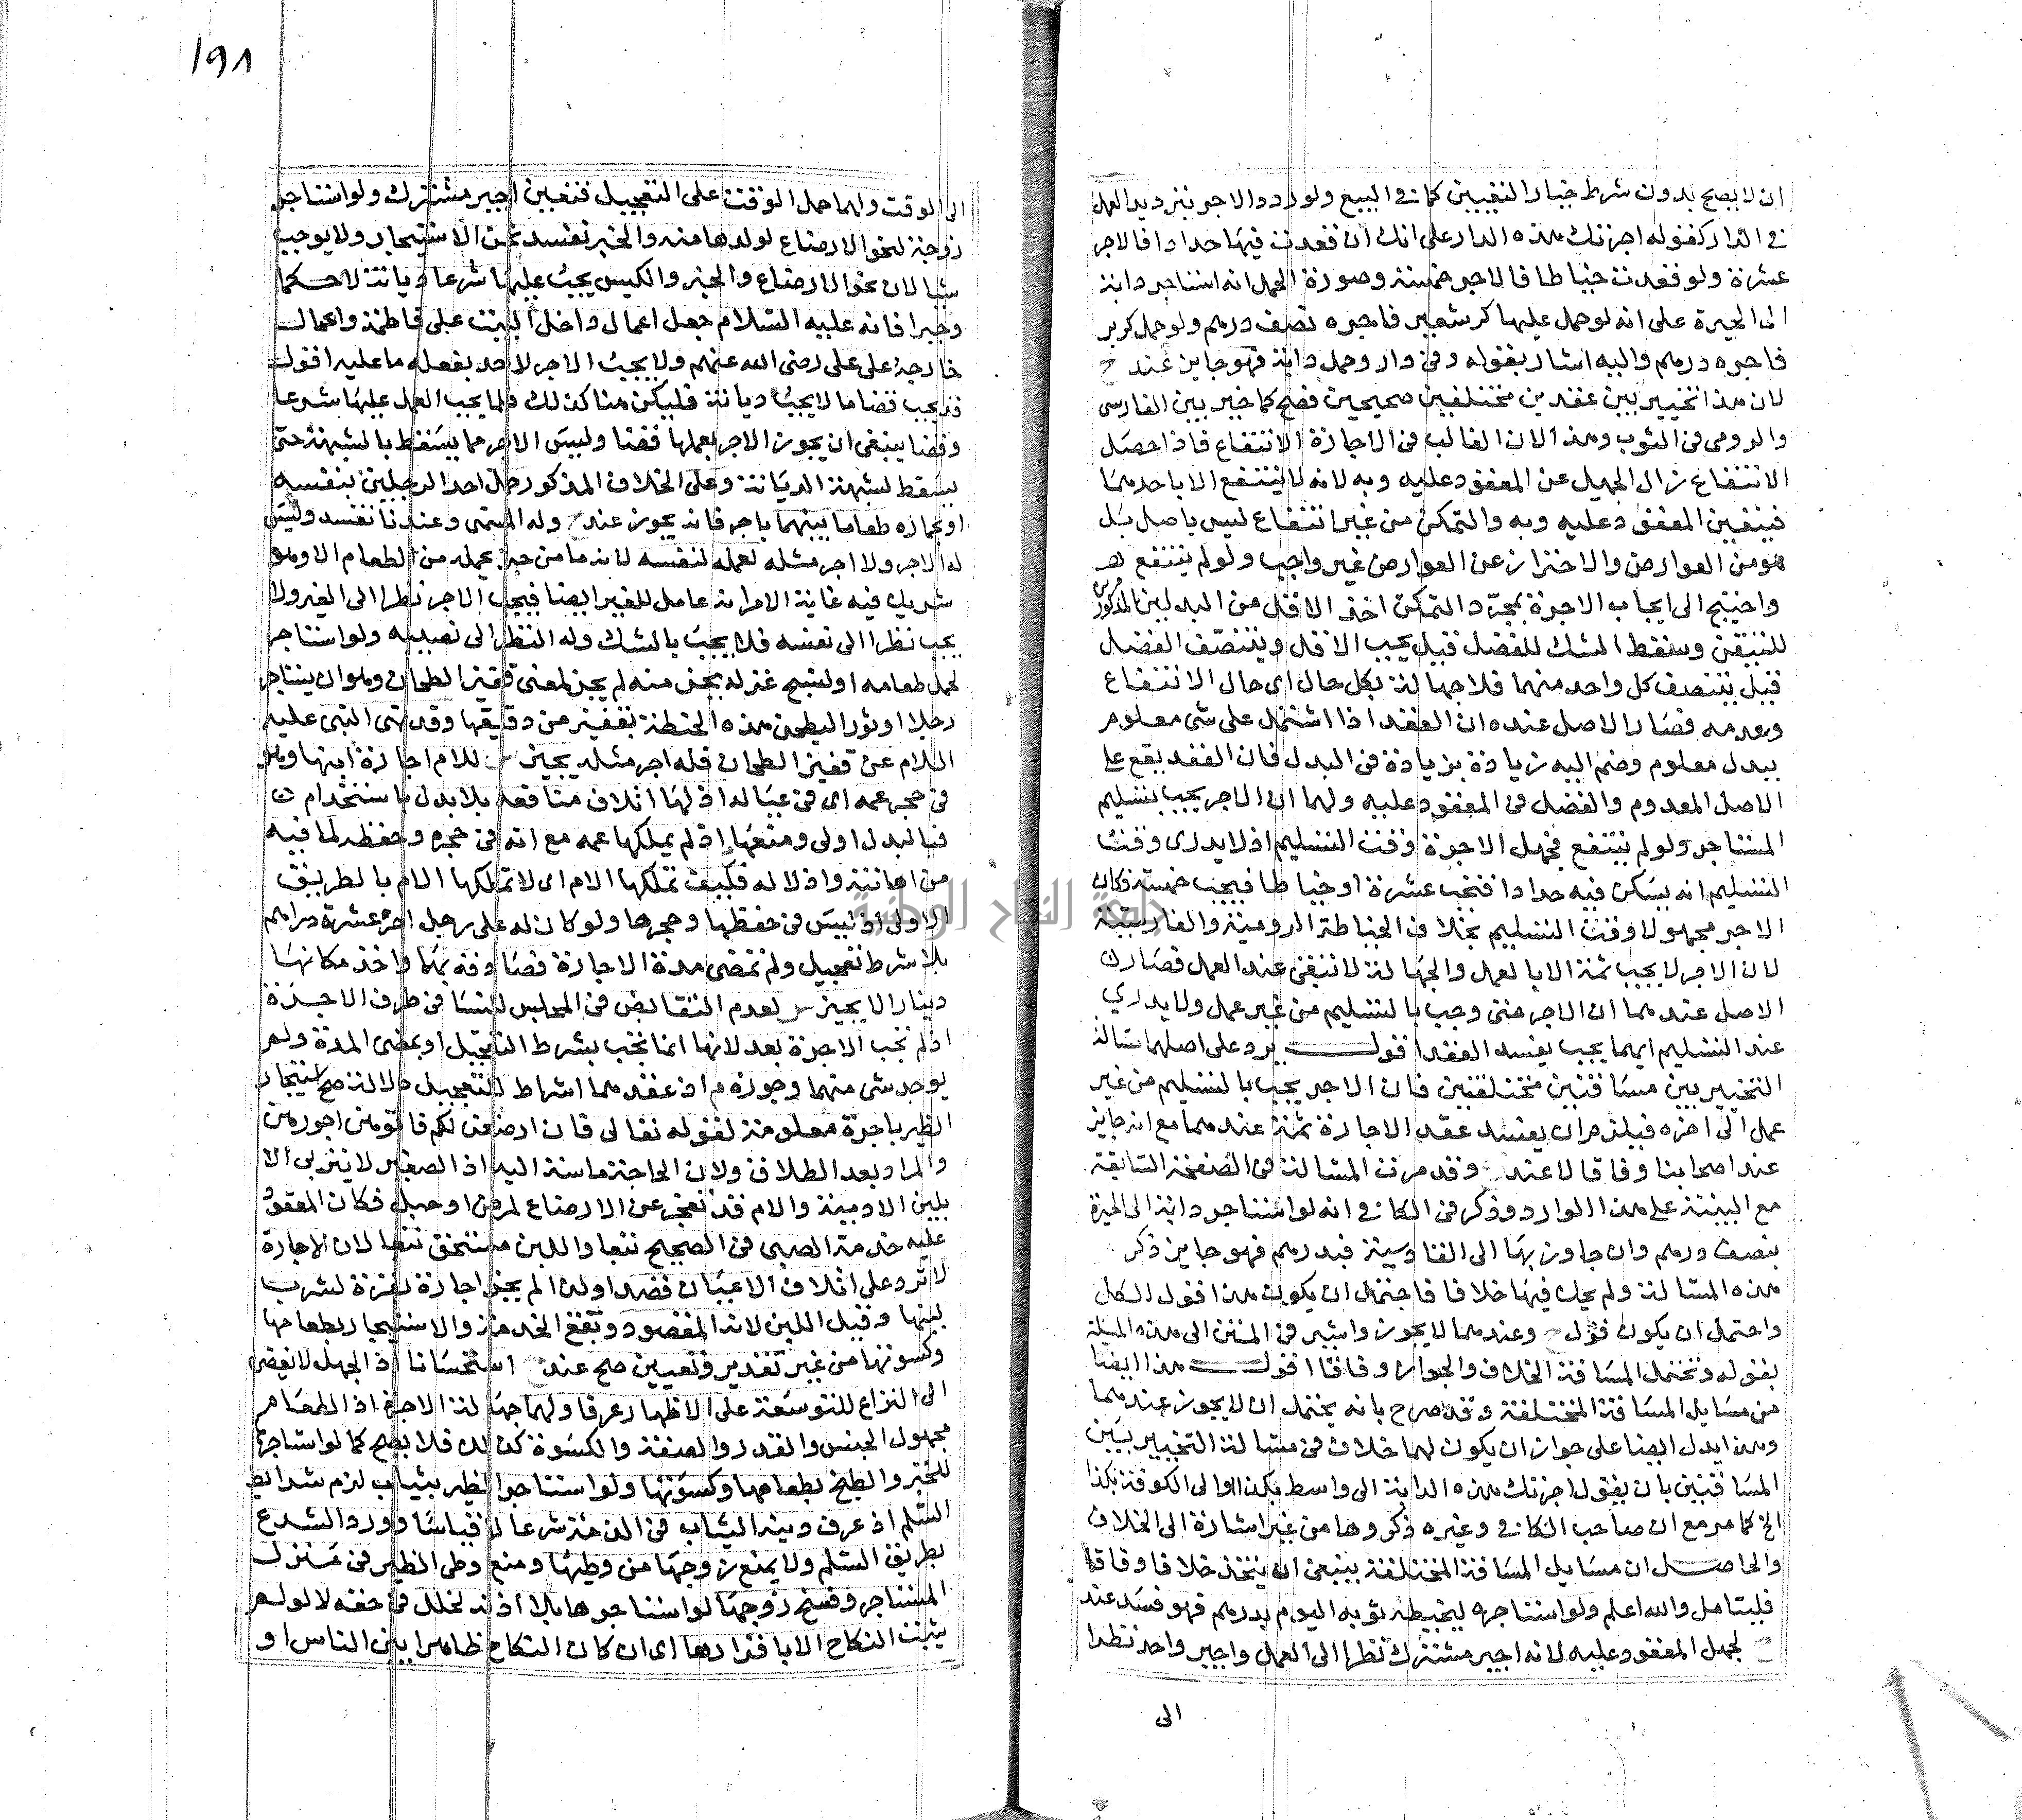 ان لا يصح بدون شرط خيار التعيين كما في البيع ولو ردد الاجر بترديد العمل
في الدار كقوله اجرتك هذه الدار على انك ان قعدت فيها حدادا فالاجر
عشرة ولو قعدت خياطا فالاجر خمسة وصورة الحمل انه استاجر دابة
الى الحيرة على انه لو حمل عليها كر شعير فاجره نصف درهم ولو حمل كر بر
فاجره درهم واليه اشار بقوله وفي دار وحمل دابة فهو جايز عند ح
لان هذا تخيير بين عقدين مختلفين صحيحين فصح كما خير بين الفارسي
والرومي في الثوب وهذا لان الغالب في الاجارة الانتفاع فاذا حصل
الانتفاع زال الجهل عن المعقود عليه وبه لانه لا ينتفع الا باحدهما
فيتعين المعقود عليه وبه والتمكن من غير انتفاع ليس باصل بل
هو من العوارض والاحتراز عن العوارض غير واجب ولو لم ينتفع
واحتيج الى ايجاب الاجرة بمجرد التمكن اخذ الاقل من البدلين المذكورين
للتيقن وسقط الشك للفضل قيل يجب الاقل ويتنصف الفضل
قيل يتنصف كل واحد منهما فلا جهالة بكل حال اي حال الانتفاع
وعدمه فصار الاصل عنده ان العقد اذا اشتمل على شي معلوم
ببدل معلوم وضم اليه زيادة بزيادة في البدل فان العقد يقع على
الاصل المعدوم والفضل في المعقود عليه ولهما ان الاجر يجب بتسليم
المستاجر ولو لم ينتفع فجهل الاجرة وقت التسليم اذ لا يدري وقت
التسليم انه يسكن فيه حدادا فتجب عشرة او خياطا فيجب خمسة فكان
الاجر مجهولا وقت التسليم بخلاف الخياطة الرومية والفارسية
لان الاجر لا يجب ثمة الا بالعمل والجهالة لا تبقى عند العمل فصار
الاصل عندهما ان الاجر متى وجب بالتسليم من غير عمل ولا يدري
عند التسليم ايهما يجب يفسد العقد اقول يرد على اصلهما مسالة
التخيير بين مسافتين مختلفتين فان الاجر يجب بالتسليم من غير
عمل الى اخره فيلزم ان يفسد عقد الاجارة ثمة عندهما مع انه جايز
عند اصحابنا وفاقا لا عند وقد مرت المسالة في الصفحة السابقة
مع البينة على هذا الوارد وذكر في الكافي انه لو استاجر دابة الى الحيرة
بنصف درهم وان جاوز بها الى القادسية فبدرهم فهو جايز ذكر
هذه المسالة ولم يحك فيها خلافا فاحتمل ان يكون هذا قول الكل
واحتمل ان يكون قول ح وعندهما لا يجوز واشير في المتن الى هذه المسئلة
بقوله وتحتمل المسافة الخلاف والجواز وفاقا اقول هذا ايضا
من مسايل المسافة المختلفة وقد صرح بانه يحتمل ان لا يجوز عندهما
وهذا يدل ايضا على جواز ان يكون لهما خلاف في مسالة التخيير بين
المسافتين بان يقول اجرتك هذه الدابة الى واسط بكذا او الى الكوفة بكذا
الخ كما مر مع ان صاحب الكافي وغيره ذكروها من غير اشارة الى الخلاف
والحاصل ان مسايل المسافة المختلفة ينبغي ان يتخذ خلافا وفاقا
فليتامل والله اعلم ولو استاجره ليخيطه ثوبه اليوم بدرهم فهو فسد عند
ح لجهل المعقود عليه لانه اجير مشترك نظرا الى العمل واجير واحد نظرا
الى
١٩٨
الى الوقت ولهما حمل الوقت على التعجيل فتعين اجير مشترك ولو استاجر
زوجته لنحو الارضاع لولدها منه والخبز تفسد ثمن الاستيجار ولا يوجب
شيا لان نحو الارضاع والخبز والكنس يجب عليها شرعا ديانة لا حكما
وجبرا فانه عليه السلام جعل اعمال داخل البيت على فاطمة واعمال
خارجه على علي رضي الله عنهم ولا يجب الاجر لاحد بفعله ما عليه اقول
قد يجب قضا ما لا يجب ديانة فليكن هنا كذلك فلما يجب العمل عليها شرعا
وقضا ينبغي ان يجوز الاجر بعملها قضا وليس الاجر مما يسقط بالشبهة حتى
يسقط لشبهة الديانة وعلى الخلاف المذكور حمل احد الرجلين بنفسه
او بحماره طعاما بينهما باجر فانه يجوز عند وله المسمى وعندنا تفسد وليس
له الاجر ولا اجر مثله لعمله لنفسه لانه ما من جزء يحمله من الطعام الا وهو
شريك فيه غاية الامر انه عامل للغير ايضا فيجب الاجر نظرا الى الغير ولا
يجب نظرا الى نفسه فلا يجب بالشك وله النظر الى نصيبه ولو استاجر
لحمل طعامه او لنسج غزله بجزء منه لم يجز لمعنى قفيز الطحان وهو ان يستاجر
رجلا او ثورا ليطحن هذه الحنطة بقفيز من دقيقها وقد نهى النبي عليه
السلام عن قفيز الطحان فله اجر مثله يجيز للام اجارة ابنها وهو
في حجر عمه اي في عياله اذ لها اتلاف منافعه بلا بدل باستخدام
فبالبدل اولى ومنعها اذ لم يملكها عمه مع انه في حجره وحفظه لما فيه
من اهانته واذلاله فكيف تملكها الام اي لا تملكها الام بالطريق
الاولى اذ ليس في حفظها وحجرها ولو كان له على رجل اجر عشرة دراهم
بلا شرط تعجيل ولم تمضي مدة الاجارة فصارفه بها واخذ مكانها
دينارا لا يجيز لعدم التقابض في المجلس للنسا في طرف الاجرة
اذ لم تجب الاجرة بعد لانها انما تجب بشرط التعجيل او بمضي المدة ولم
يوجد شي منهما وجوزه م اذ عقدهما اشراط للتعجيل دلالة صح استيجار
الظير باجرة معلومة لقوله تعالى فان ارضعن لكم فاتوهن اجورهن
والمراد بعد الطلاق ولان الحاجة ماسة اليه اذ الصغير لا يتربى الا
بلبن الادمية والام قد تعجز عن الارضاع لمرض او حبل فكان المعقود
عليه خدمة الصبي في الصحيح تبعا واللبن مستحق تبعا لان الاجارة
لا ترد على اتلاف الاعيان قصدا ولذا لم يجز اجارة بقرة لشرب
لبنها وقيل اللبن لانه المقصود وتقع الخدمة والاستيجار بطعامها
وكسوتها من غير تقدير وتعيين صح عند ح استحسانا اذ الجهل لا يفضي
الى النزاع للتوسعة على الاظهار عرفا ولهما جهالة الاجرة اذ الطعام
مجهول الجنس والقدر والصفة والكسوة كذلك فلا يصح كما لو استاجرها
للخبز والطبخ بطعامها وكسوتها ولو استاجر الظير بثياب لزم شرايط
السلم اذ عرف دينه الثياب في الذمة شرعا لا قياسا وورد الشرع
بطريق السلم ولا يمنع زوجها من وطيها ومنع وطي الظير في منزل
المستاجر وفسخ زوجها لو استاجرها بلا اذنه لخلل في حقه لا لو لم
يثبت النكاح الا باقرارها اي ان كان النكاح ظاهرا بين الناس او